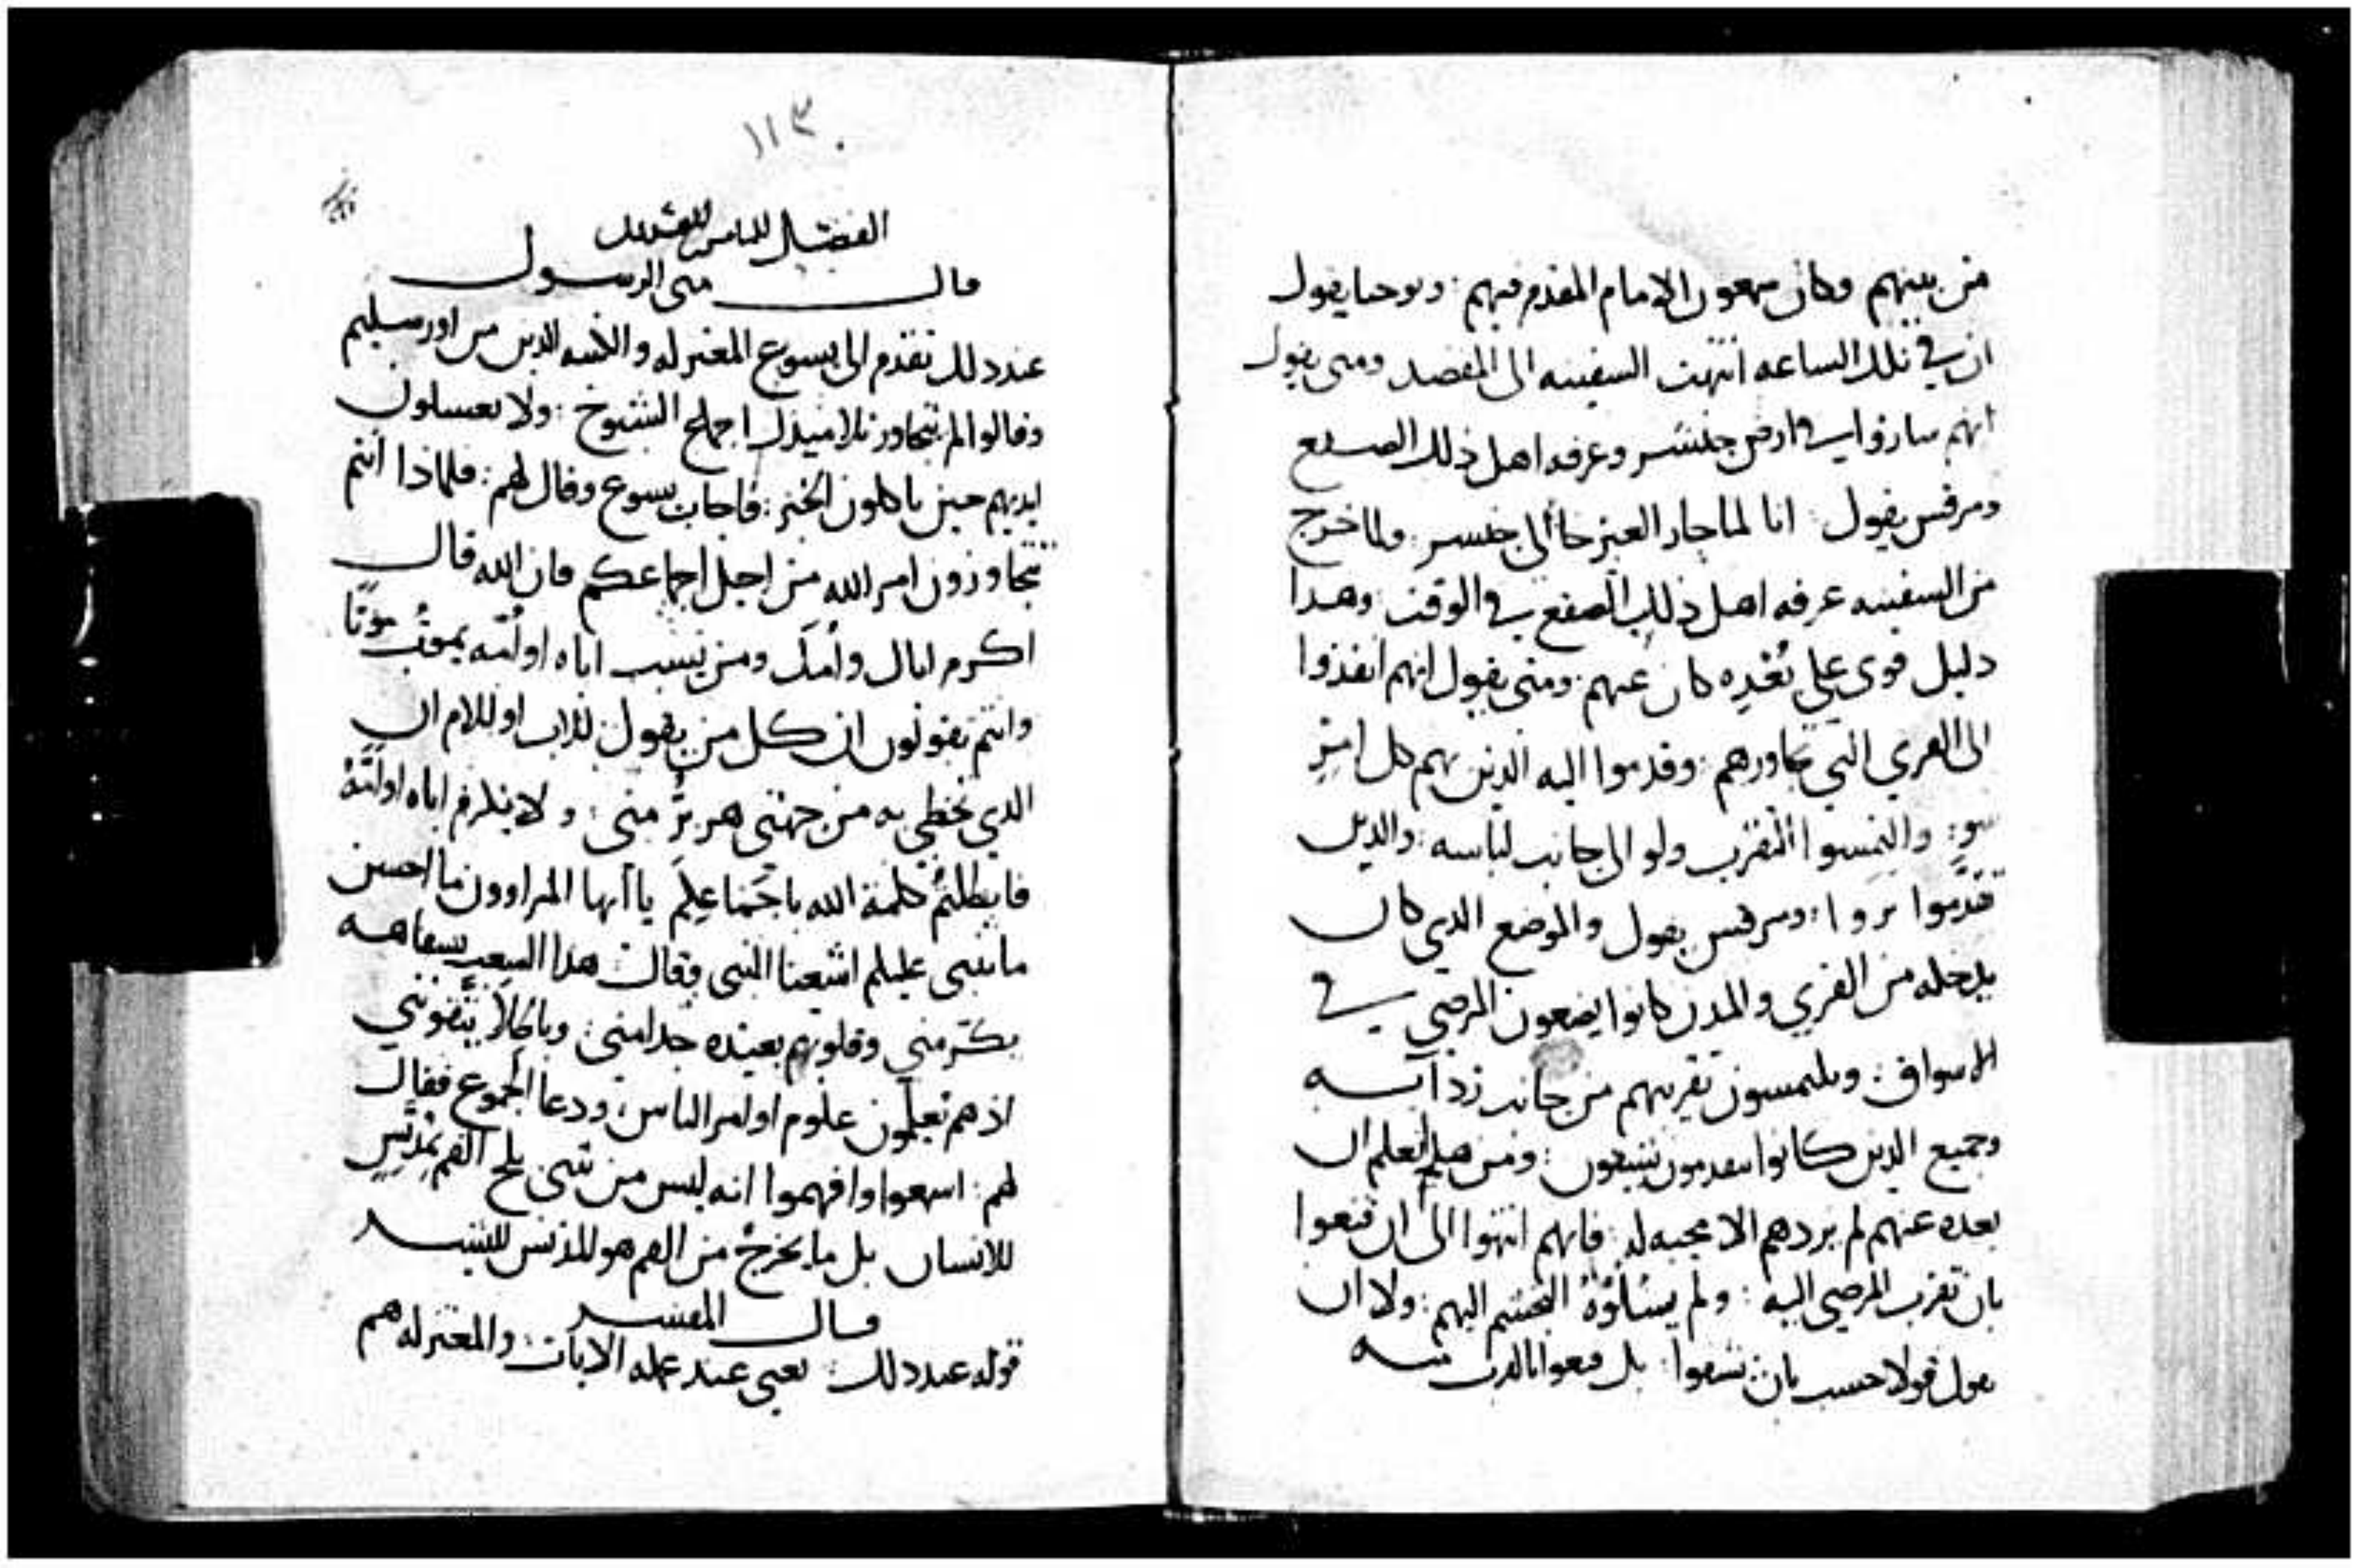 من بينهم وكان سمعون الامام المقدم فيهم : ويوحنا يقول
ان في تلك الساعه انتهت السفينه الى المقصد ومتى يقول
انهم ساروا في ارض جنسر وعرفه اهل ذلك الصقع
ومرقس يقول انا لما جاز العبر جا الى جنسر ولما خرج
من السفينه عرفه اهل ذلك الصقع في الوقت وهدا
دليل قوى على بُعْدِه كان عنهم ومتى يقول انهم انفذوا
الى القري التي تجاورهم : وقدموا اليه الذين بهم كل امرٍ
سو : والتمسوا التقرب ولو الى جانب لباسه : والدين
تقدَّموا بروا : ومرقس يقول والموضع الدي كان
يدخله من القري والمدن كانوا يضعون المرضي في
الاسواق : ويلتمسون تقريبهم من جانب ردآيه
وجميع الدين كانوا يتقدمون يشفون : ومن هدا تعلم ان
بعده عنهم لم يزدهم الا محبه له : فانهم انتهوا الى ان قنعوا
بان تقرب المرضي اليه : ولم يسئلوْهُ التجشم اليهم : ولا ان
يقول قولا حسب بان يشفوا : بل قنعوا بالقرب منه
١١٣
الفصل
قال متى الرسول
عند دلك تقدم الى يسوع المعتزله والكتبه الدين من اورسليم
وقالوا لم يتجاوز تلاميدك اجماع الشيوخ : ولا يغسلون
ايديهم حين ياكلون الخبز : فاجاب يسوع وقال لهم : فلماذا انتم
تتجاوزون امر الله من اجل اجماعكم فان الله قال
اكرم اباك وأمك ومن يسب اباه او أمّه يموتُ موْتًا
وانتم تقولون ان كل من يقول للاب او للام ان
الدي تحظي به من جهتي هو برٌّ مني : ولا يكرم اباه او أمّهُ
فابطلتُم كلمة الله باجماعكم يا ايها المراوون ما احسن
ما تنبى عليكم اشعيا النبى وقال : هدا الشعب بشفاهه
يكرمني وقلوبهم بعيده جدا مني : وباطلاً يتقونني
اذ هم يعلمون علوم اوامر الناس : ودعا الجموع فقال
لهم : اسمعوا وافهموا انه ليس من شي يلج الفم يُدنّسِ
للانسان بل ما يخرجُ من الفم هو المدنس للبشر
قال المفسر
قوله عند دلك : يعني عند عمله الايات : والمعتزله هم